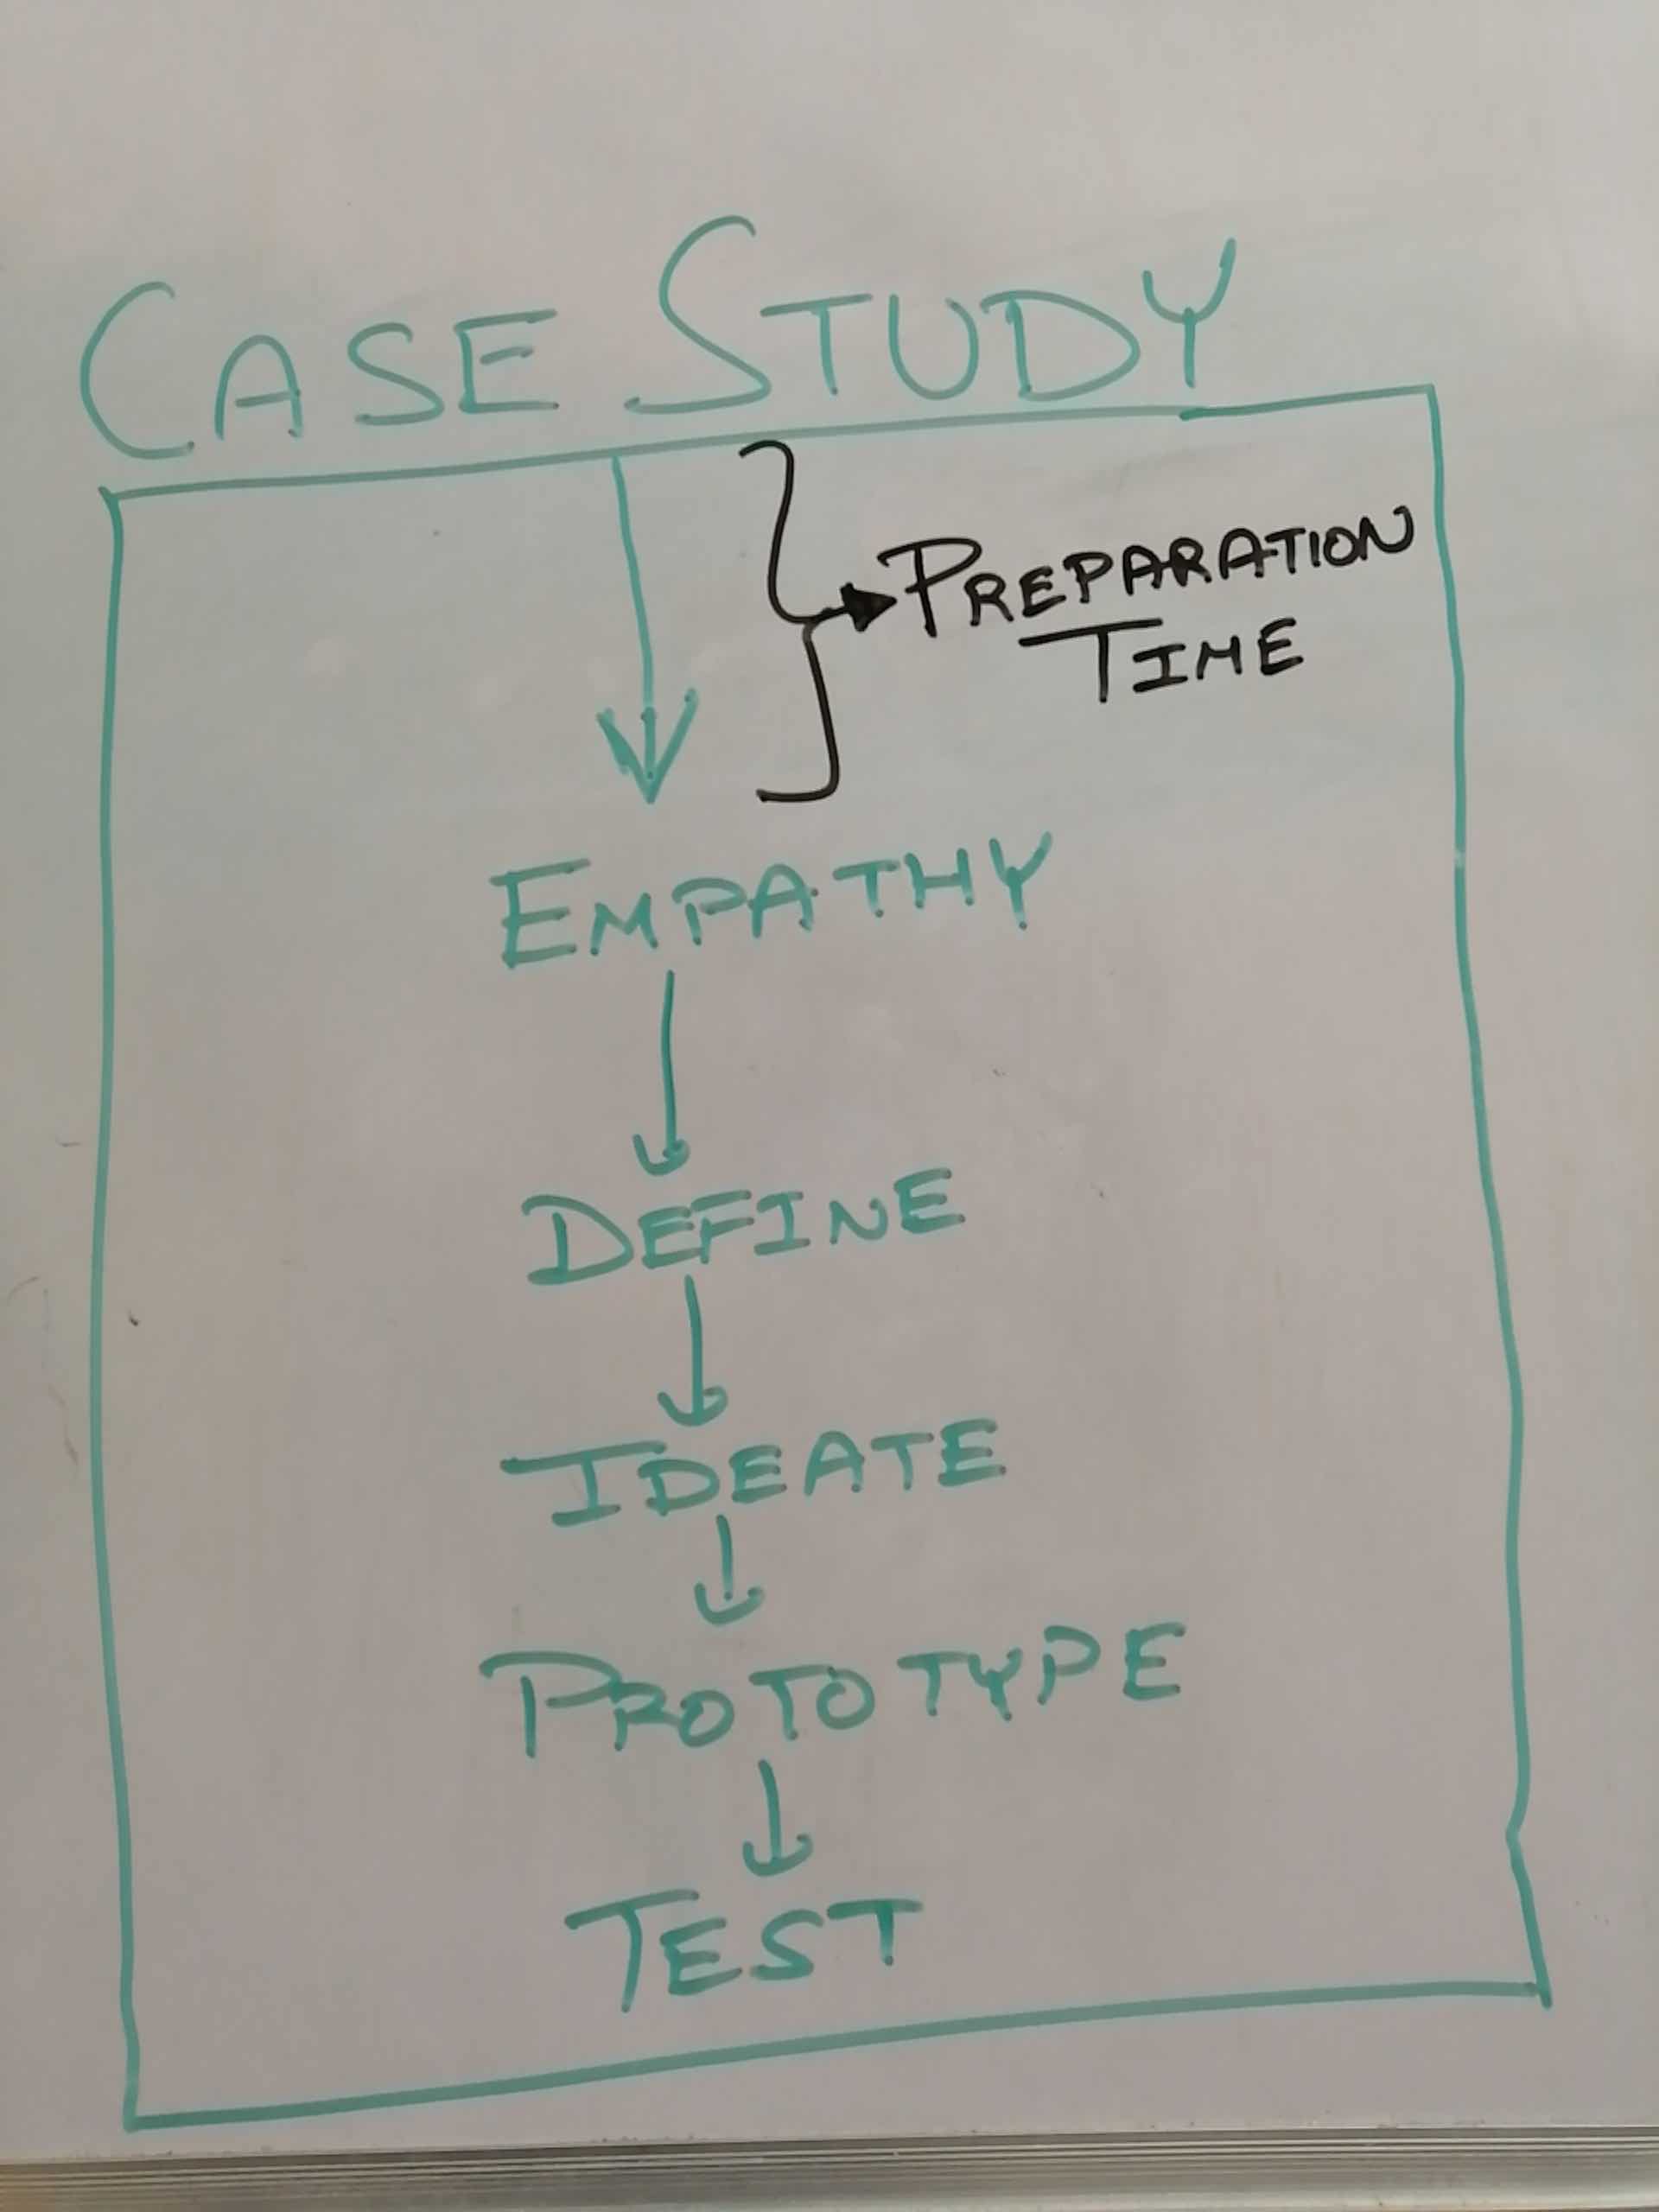 CASE STUDY
PREPARATION
TIME
EMPATHY
DEFINE
IDEATE
PROTOTYPE
TEST